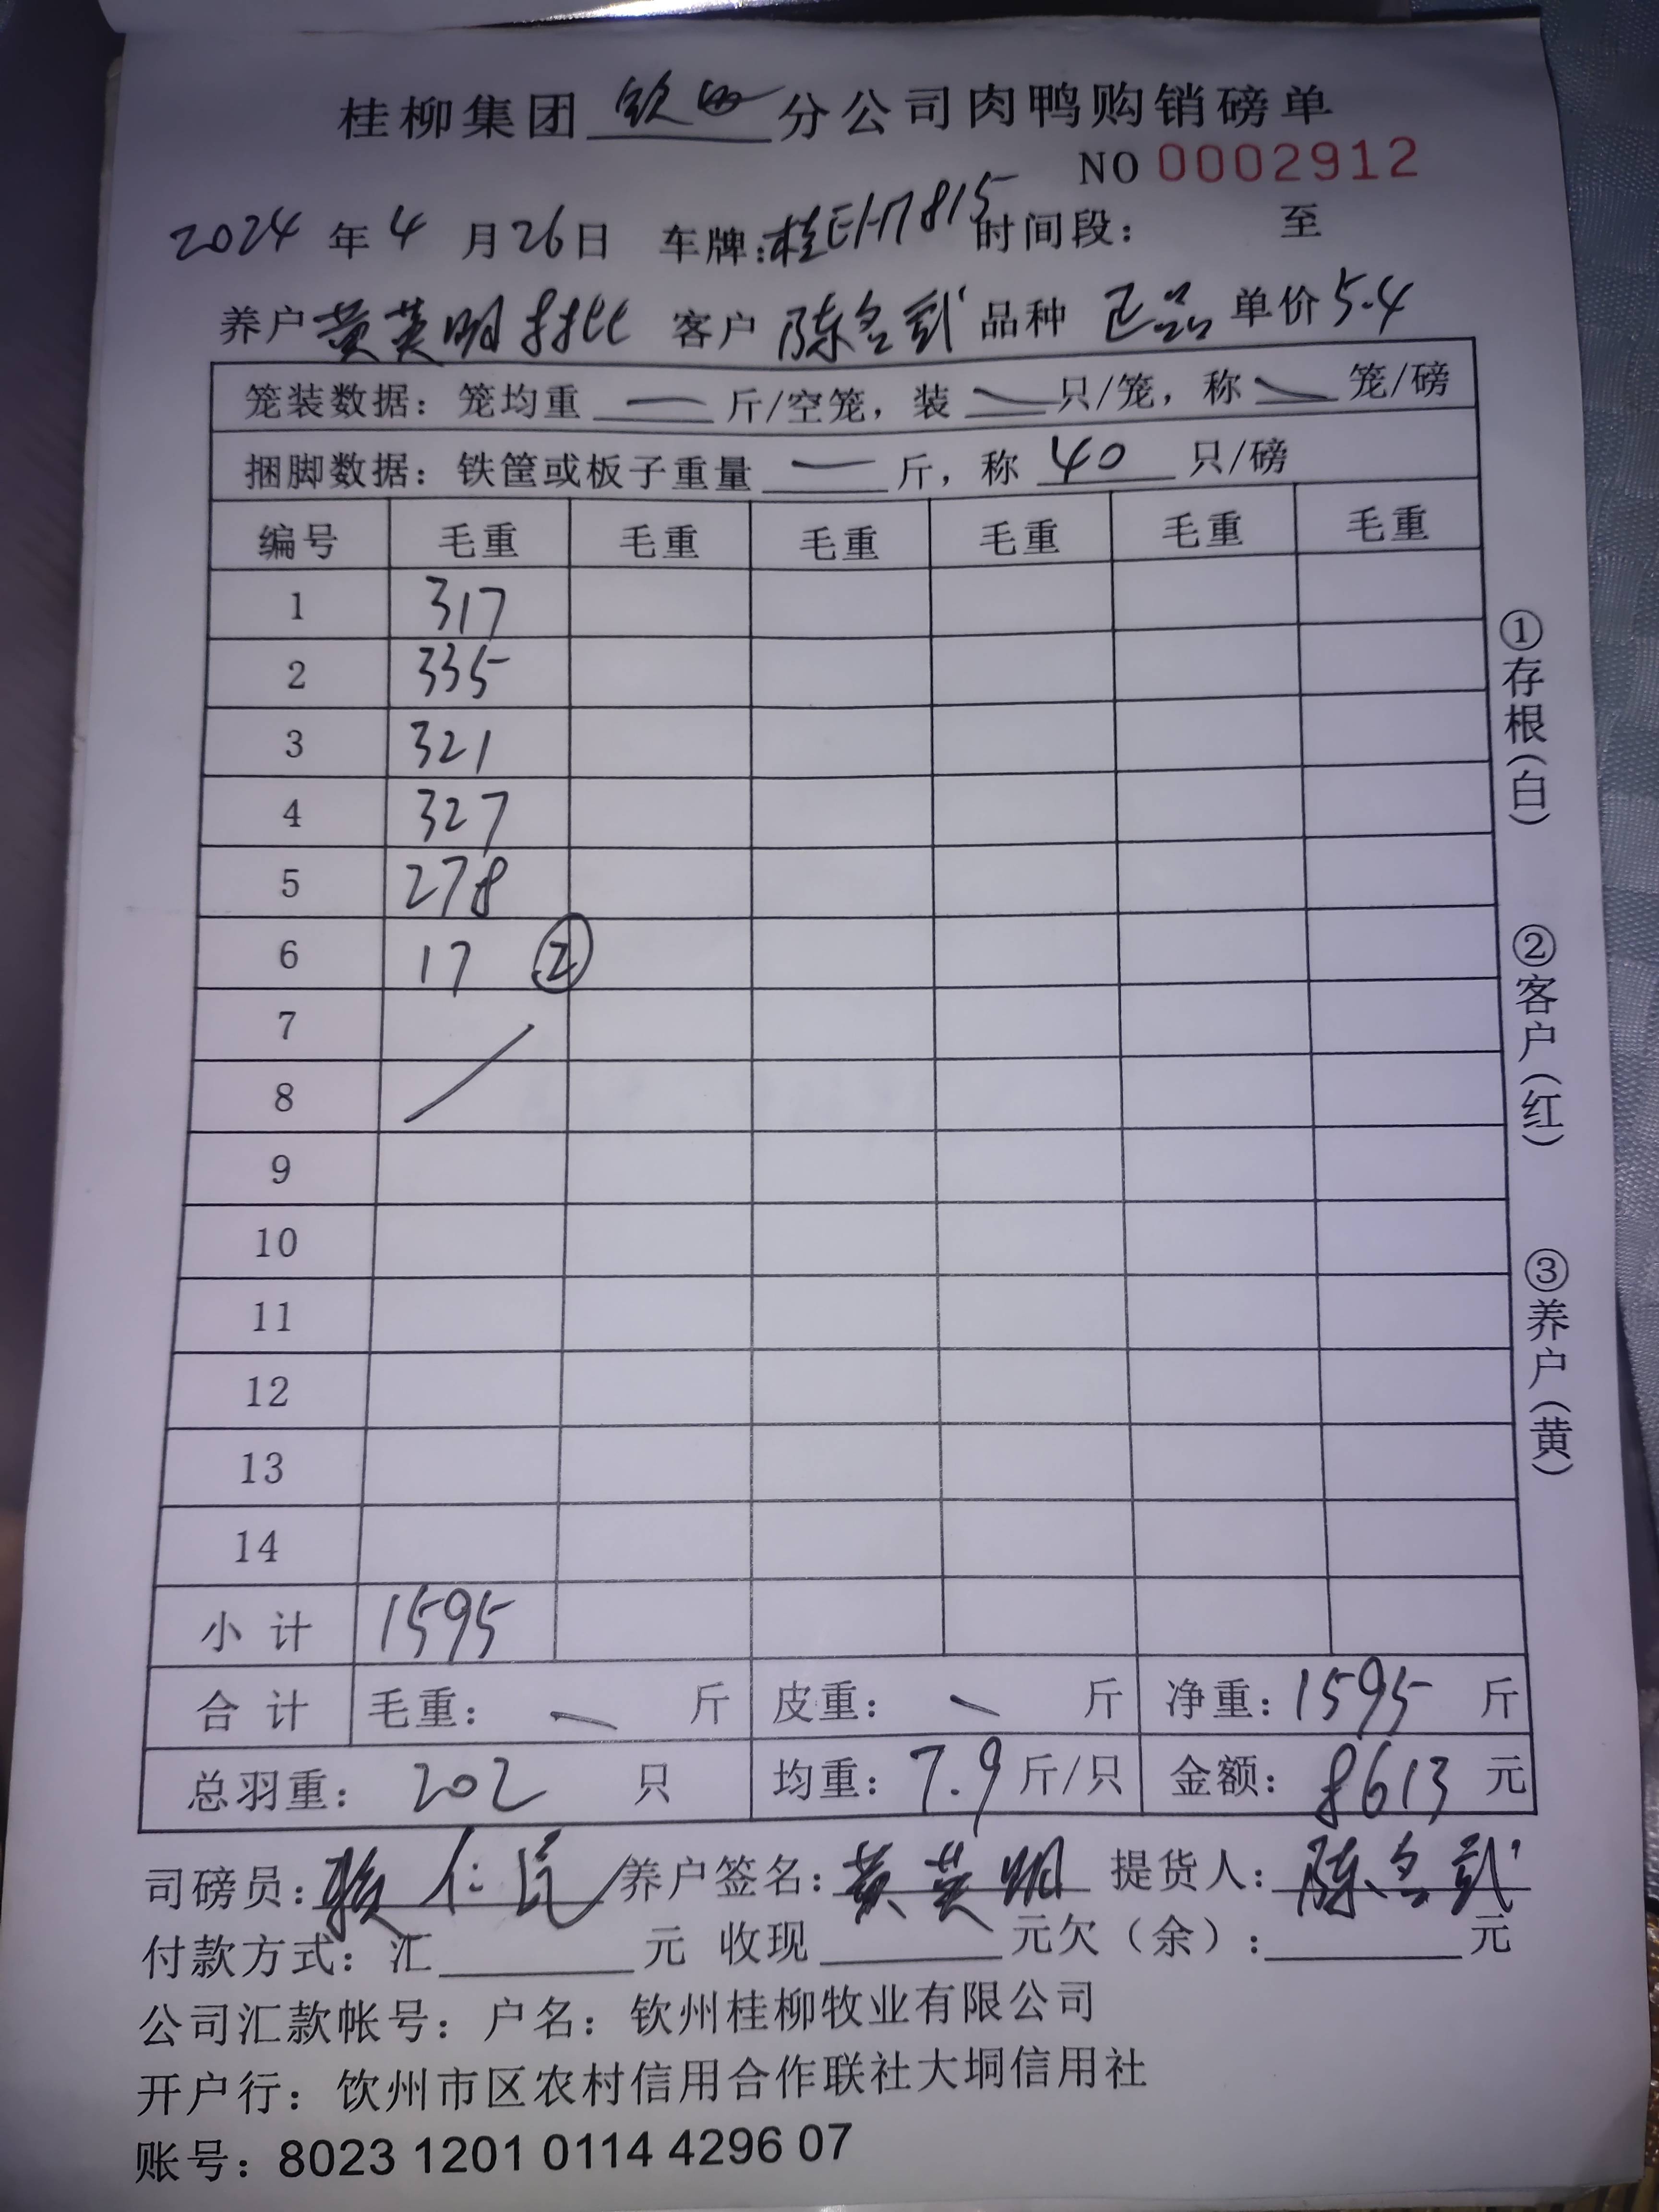 桂柳集团 钦州 分公司肉鸭购销磅单
NO 0002912
2024 年 4 月 26 日 车牌:桂EH7815 时间段: 至
养户 黄英明 客户 陈名武 品种 正品 单价 5.4
笼装数据: 笼均重 — 斤/空笼, 装 — 只/笼, 称 — 笼/磅
捆脚数据: 铁筐或板子重量 — 斤, 称 40 只/磅
编号 毛重 毛重 毛重 毛重 毛重 毛重
1 317
2 335
3 321
4 327
5 278
6 17 ②
7
8
9
10
11
12
13
14
小计 1595
合计 毛重: — 斤 皮重: — 斤 净重: 1595 斤
总羽重: 202 只 均重: 7.9 斤/只 金额: 8613 元
司磅员: 养户签名: 黄英明 提货人: 陈名武
付款方式: 汇 元 收现 元欠(余): 元
公司汇款帐号: 户名: 钦州桂柳牧业有限公司
开户行: 钦州市区农村信用合作联社大垌信用社
账号: 8023 1201 0114 4296 07
①存根(白)
②客户(红)
③养户(黄)